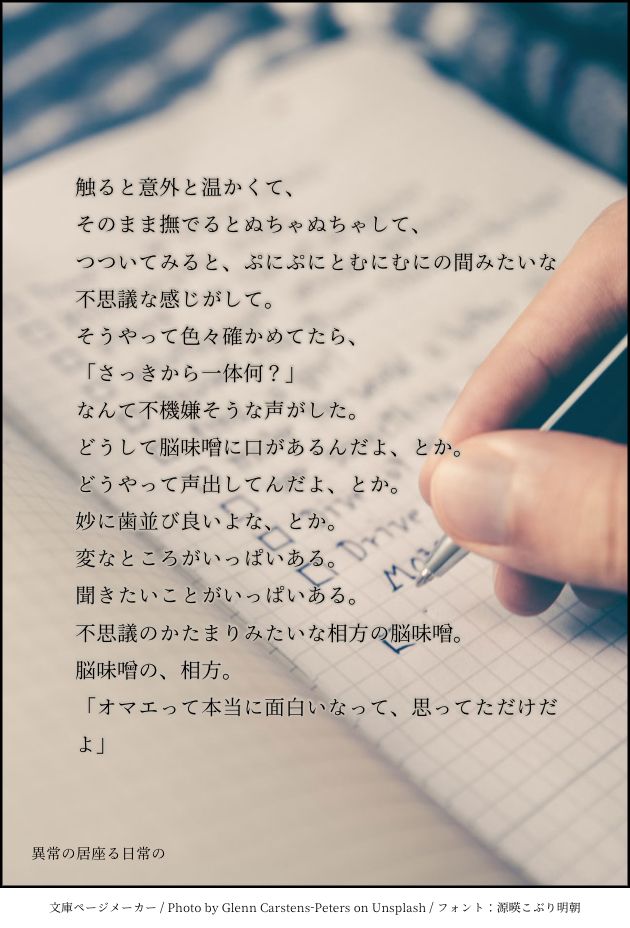 触ると意外と温かくて、
そのまま撫でるとぬちゃぬちゃして、
つついてみると、ぷにぷにとむにむにの間みたいな
不思議な感じがして。
そうやって色々確かめてたら、
「さっきから一体何？」
なんて不機嫌そうな声がした。
どうして脳味噌に口があるんだよ、とか。
どうやって声出してんだよ、とか。
妙に歯並び良いよな、とか。
変なところがいっぱいある。
聞きたいことがいっぱいある。
不思議のかたまりみたいな相方の脳味噌。
脳味噌の、相方。
「オマエって本当に面白いなって、思ってただけだ
よ」
Drive
異常の居座る日常の
文庫ページメーカー / Photo by Glenn Carstens-Peters on Unsplash / フォント：源暎こぶり明朝